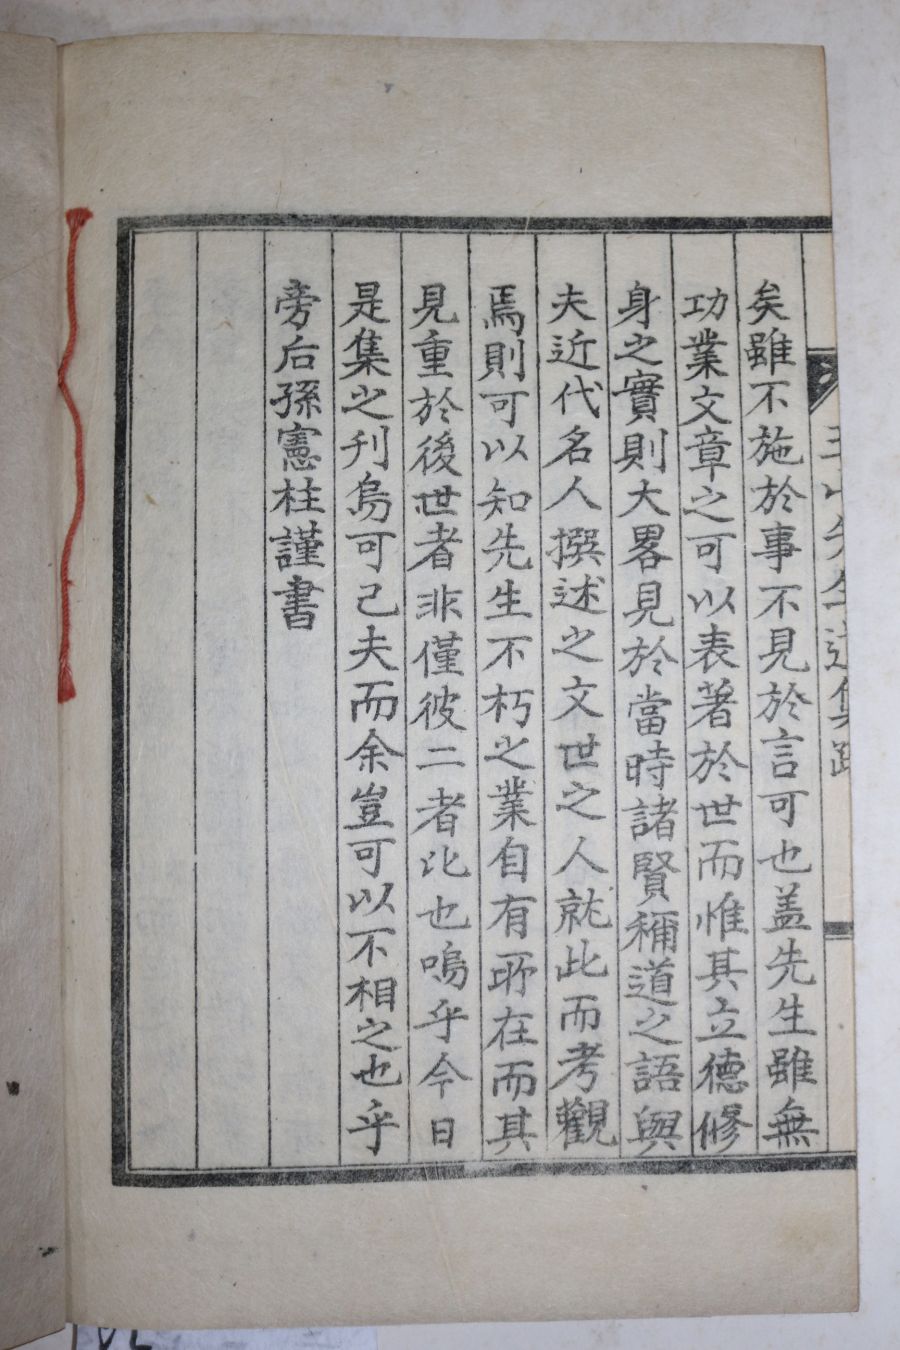 矣雖不施於事不見於言可也盖先生雖無
功業文章之可以表著於世而惟其立德修
身之實則大畧見於當時諸賢稱道之語與
夫近代名人撰述之文世之人就此而考觀
焉則可以知先生不朽之業自有所在而其
見重於後世者非僅彼二者比也嗚乎今日
是集之刊烏可已夫而余豈可以不相之也乎
旁后孫憲柱謹書
先生逸集跋